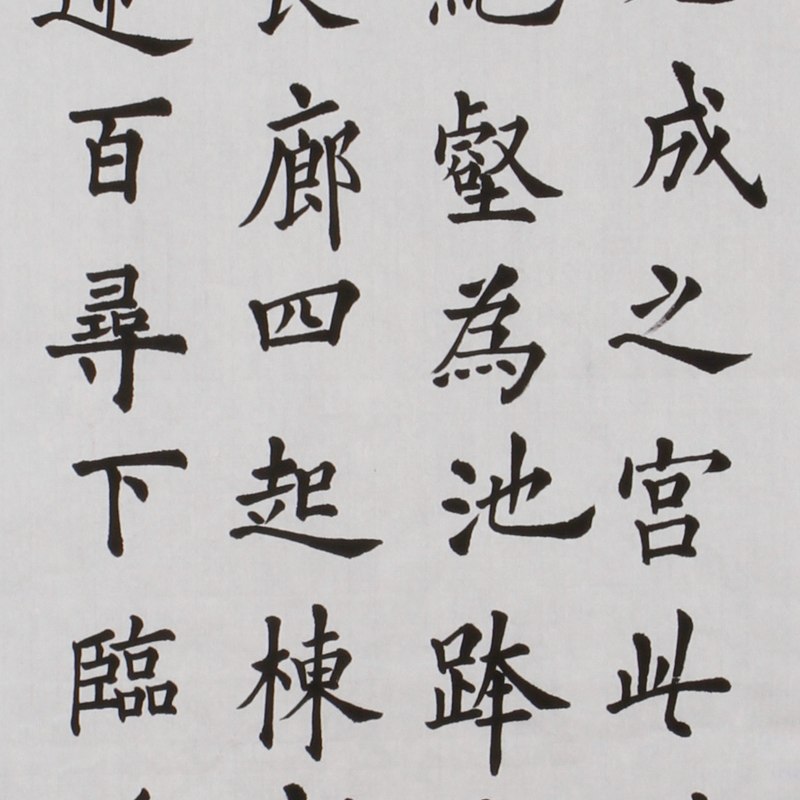 成之宮此
壑為池跨
廊四起棟
百尋下臨